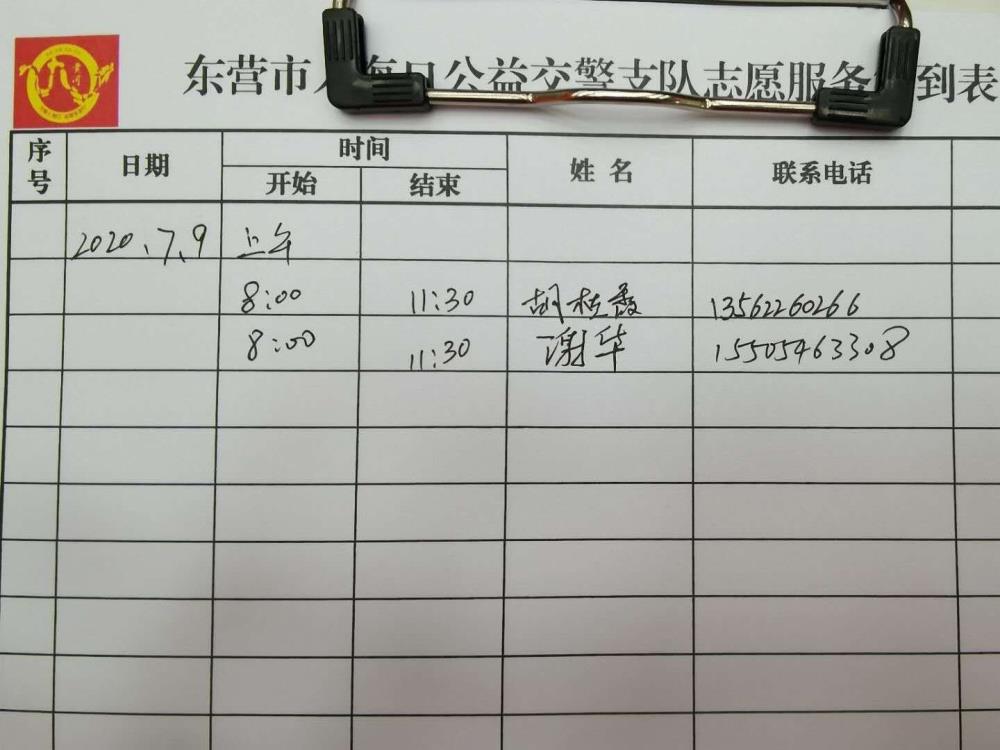 东营市人海口公益交警支队志愿服务签到表
序号 日期 时间 姓名 联系电话
开始 结束
2020、7、9 上午
8:00 11:30 胡桂霞 13562260266
8:00 11:30 谢华 15505463308